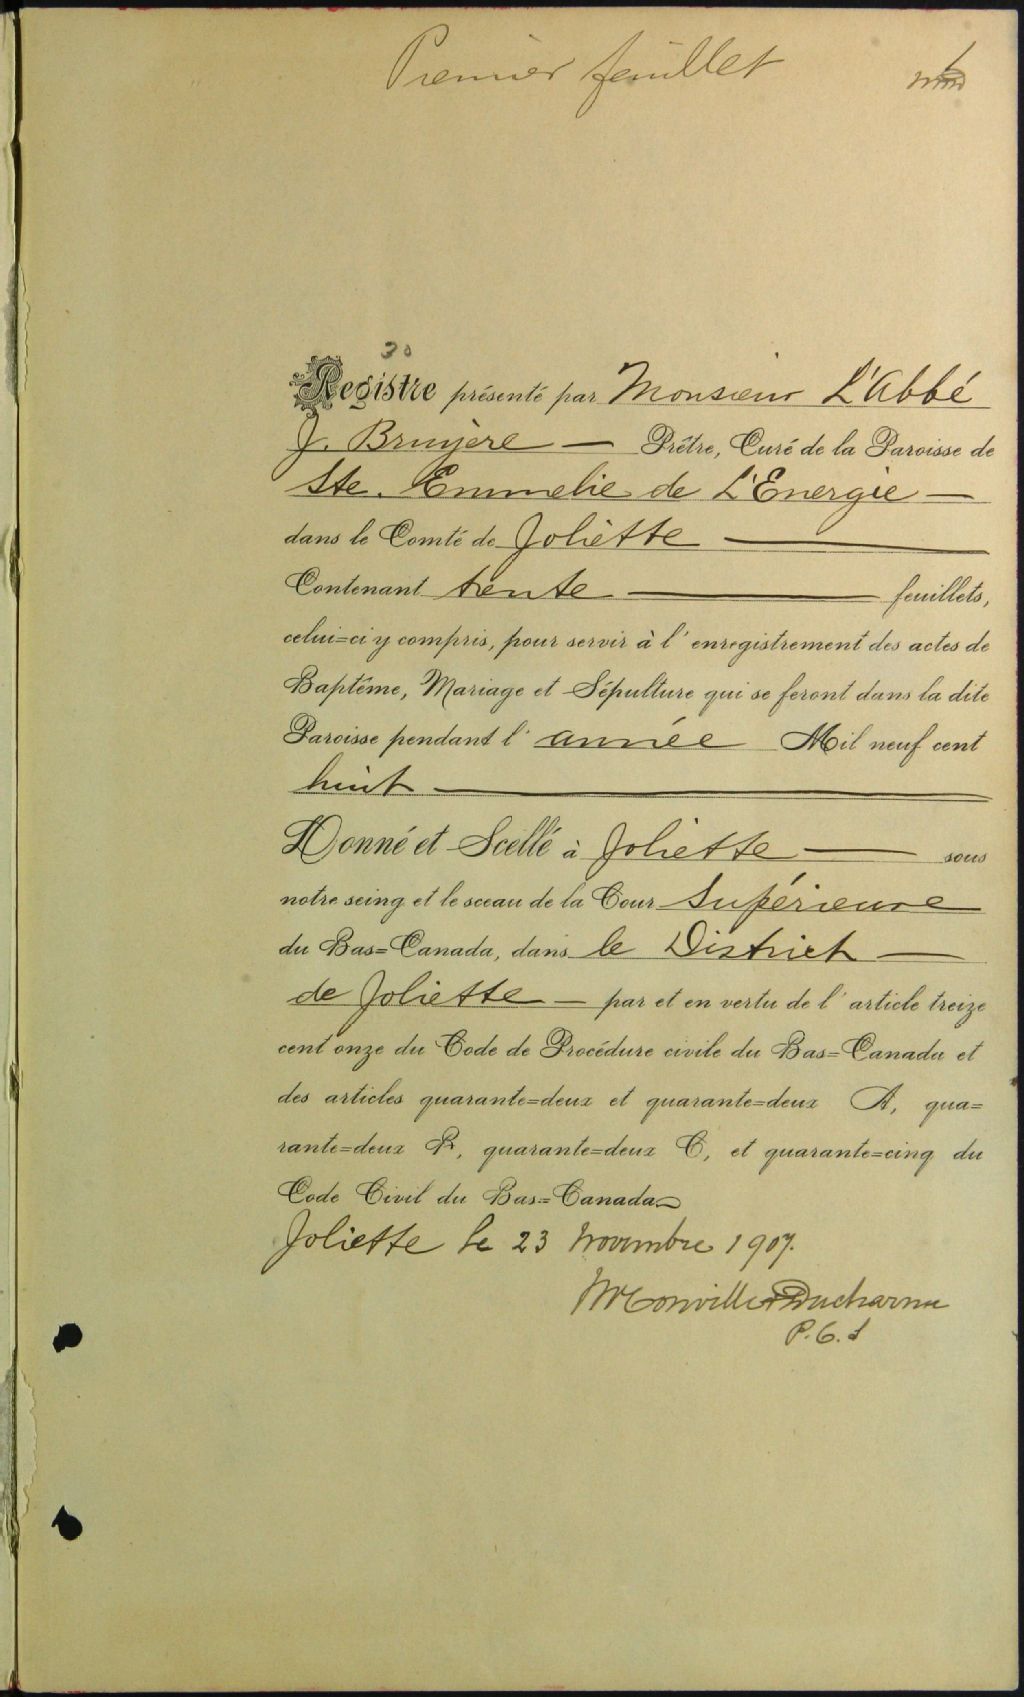 Premier feuillet
1
30
Registre présenté par Monsieur L'Abbé
J. Bruyere — Prêtre, Curé de la Paroisse de
Ste. Emmelie de L'Energie —
dans le Comté de Joliètte —
Contenant trente — feuillets,
celui=ci y compris, pour servir à l'enregistrement des actes de
Baptême, Mariage et Sépulture qui se feront dans la dite
Paroisse pendant l'année Mil neuf cent
huit —
Donné et Scellé à Joliette — sous
notre seing et le sceau de la Cour Supérieure
du Bas=Canada, dans le District —
de Joliette — par et en vertu de l'article treize
cent onze du Code de Procédure civile du Bas=Canada et
des articles quarante=deux et quarante=deux A, qua=
rante=deux B, quarante=deux C, et quarante=cinq du
Code Civil du Bas=Canada
Joliette le 23 Novembre 1907.
McConville & Ducharme
P.C.S